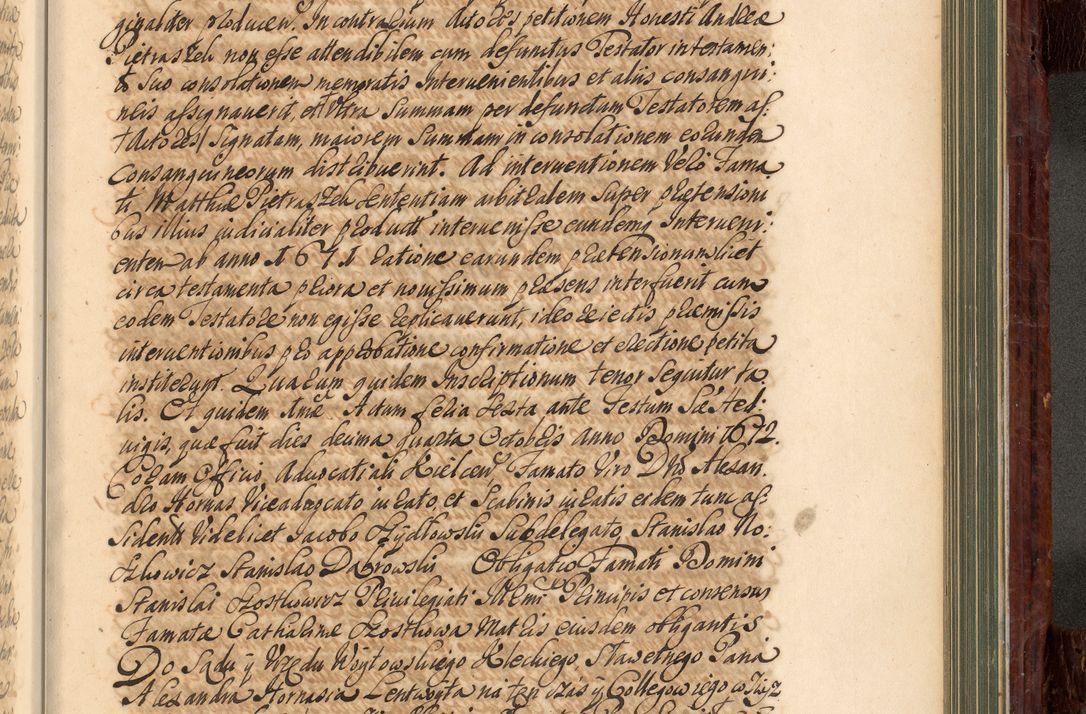 producen. In contrarium Actores petitionem Honesti Andreæ
Pietraszek non esse attendibilem cum defunctus Testator in testamen:
to suo consolationem memoratis Intervenientibus et aliis consangui:
neis assignaverit, et ultra summam per defunctum Testatorem as
†Actores† signatam, maiorem summam in consolationem eorundem
Consanguineorum distribuerint. Ad interventionem vero Fama
ti Matthiæ Pietraszek sententiam arbitralem super prætensioni
bus illius judicialiter product intervenisse eundemq Interveni:
entem ab anno 1671 ratione earundem prætensionum licet
circa testamenta priora et novissimum præsens interfuerit cum
eodem Testatore non egisse replicaverunt, ideo reiectis præmissis
interventionibus pro approbatione confirmatione et erectione petita
institerunt. Quarum quidem Inscriptionum tenor sequitur ta
lis. Et quidem Imæ Actum feria sexta ante Festum S Hed:
vigis, quæ fuit dies decima quarta Octobris Anno Domini 1672.
Coram Officio Advocatiali Kielcen Famato Viro Dno Alexan
dro Hornas Viceadvocato jurato, et Scabinis juratis eidem tunc as
sidentt videlicet Jacobo Szydłowski Subdelegato, Stanislao No:
szkowicz Stanislao Dąbrowski Obligatio Famati Domini
Stanislai Szostkowicz Privilegiati Illmi Principis et consensus
Famatæ Catharinæ Szostkowa Matris eiusdem obligantis
Do Sądu y Urzędu Woytowskiego Kieleckiego, Sławetnego Pana
Alexandra Hornasia Lentwoyta na ten czas y Collegow iego w Kiel